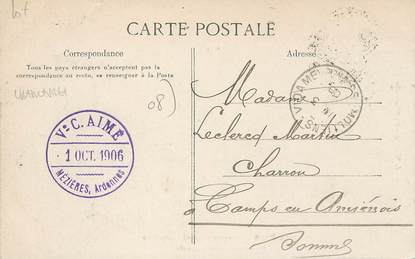 CARTE POSTALE
Correspondance
Tous les pays étrangers n'acceptent pas la
correspondance au recto, se renseigner à la Poste
08)
Vᵉ C. AIMÉ
1 OCT. 1906
MÉZIÈRES, Ardennes
Adresse
Madame
Leclercq Martin
Charron
à Camps en Amiénois
Somme